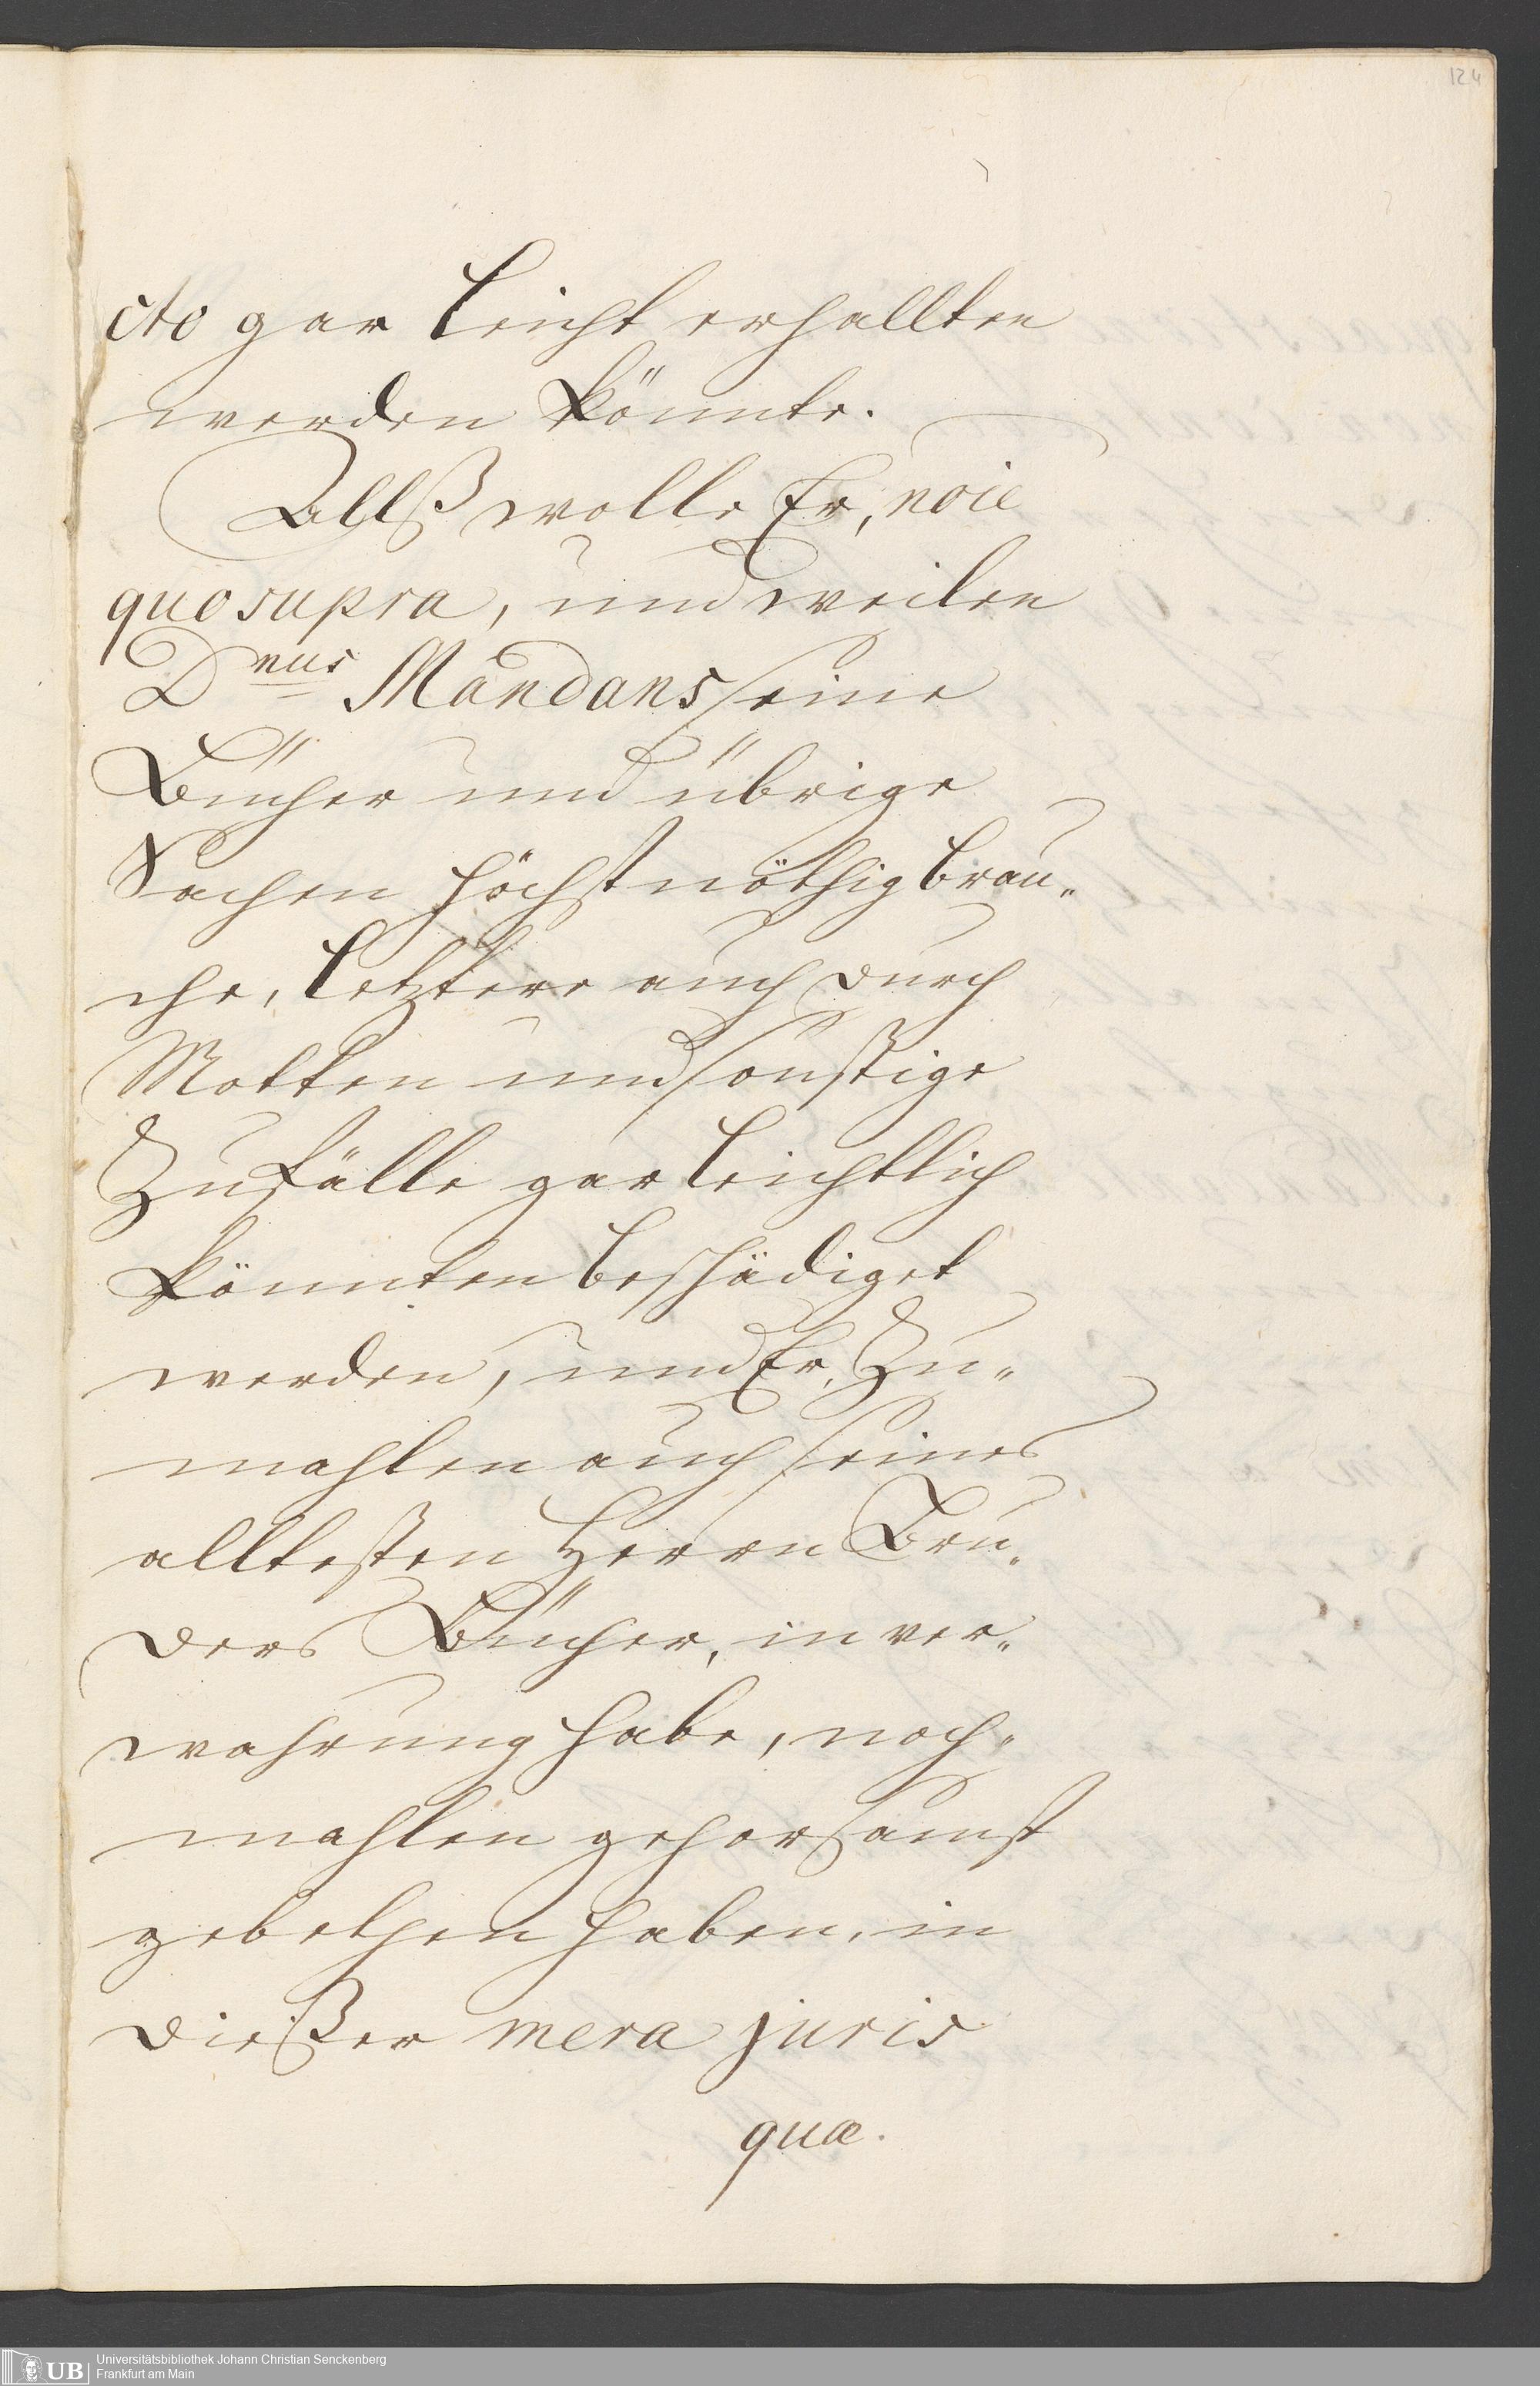 124
cto gar leicht erhallten
werden könnte.
Allß wolle Er, noie
quo supra, und weilen
Dnus Mandans seine
Bücher und übrige
Sachen höchst nöthig brau„
che, letztere auch durch
Motten und sonstige
Zufälle gar leichtlich
könnten beschädiget
werden, und Er, Zu„
mahlen auch seines
alltesten Herrn Bru„
ders Bücher, in ver„
wahrung habe, noch„
mahlen gehorsamst
gebethen haben, in
dießer mera juris
quæ.
UB
Universitätsbibliothek Johann Christian Senckenberg
Frankfurt am Main